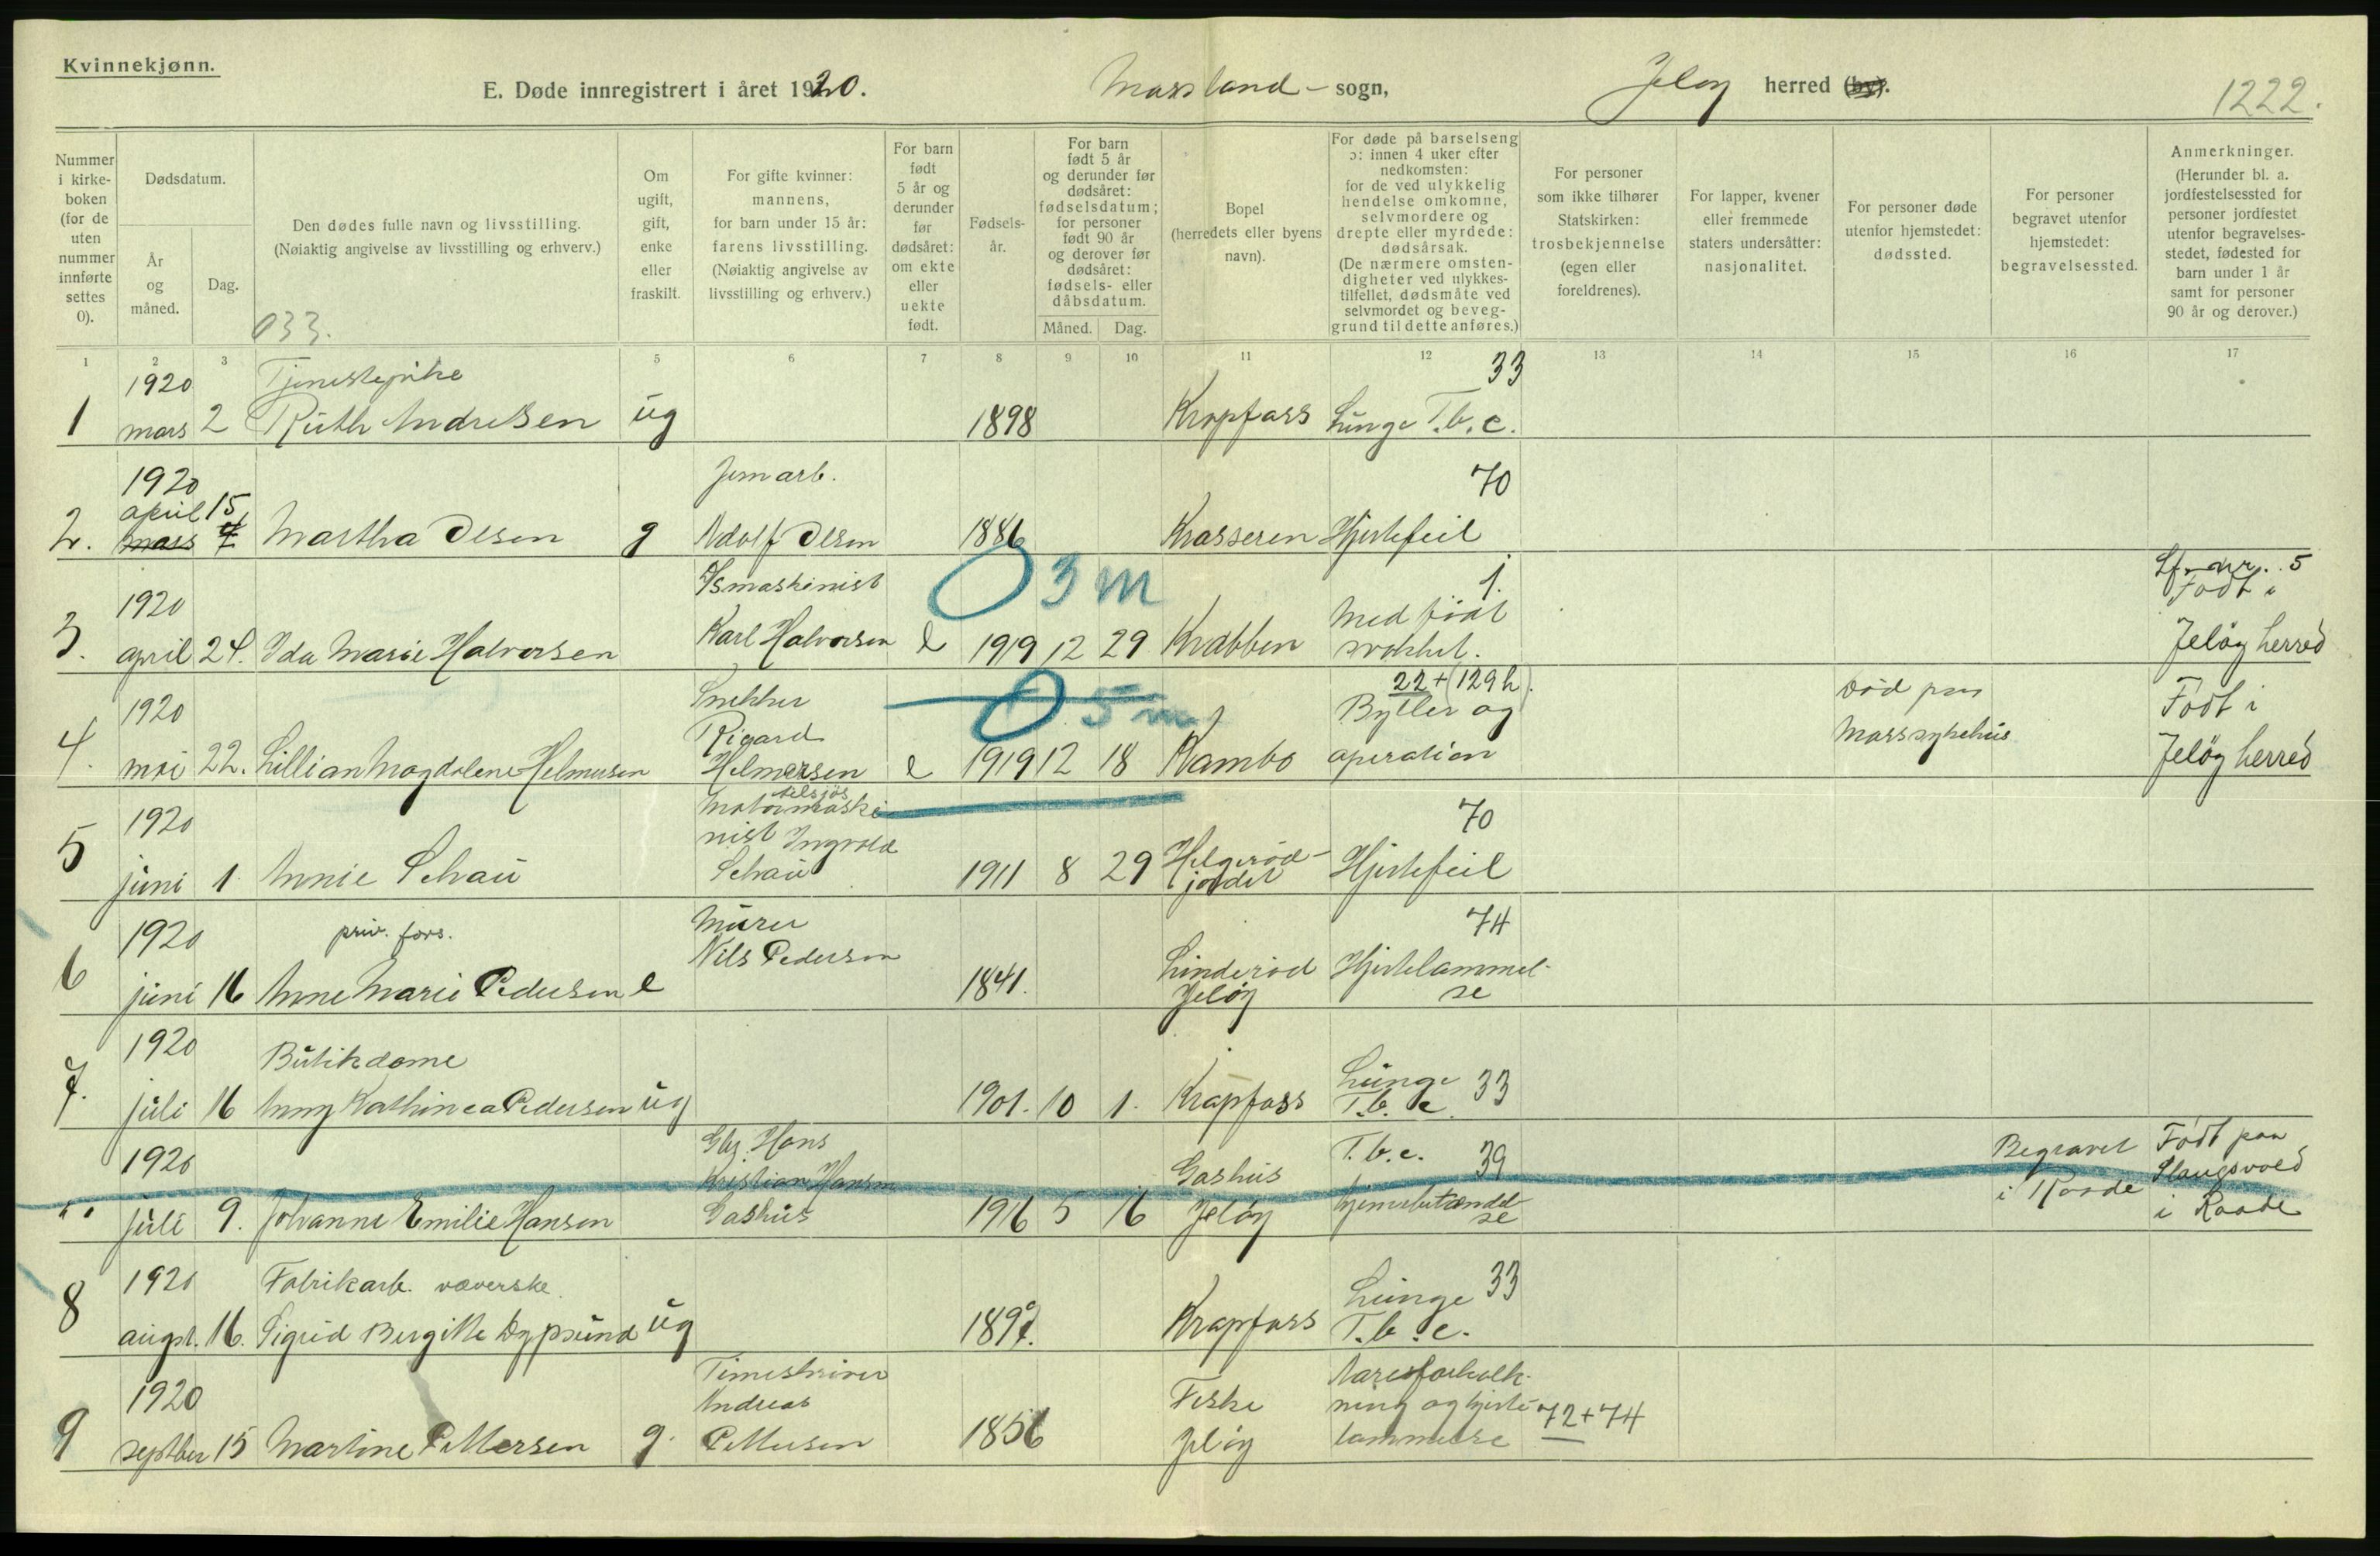 Kvinnekjønn.
E. Døde innregistrert i året 1920.
Mossland - sogn,
Jeløy herred (by).
1222.
Nummer i kirkeboken (for de uten nummer innførte settes 0).
Dødsdatum.
År og måned.
Dag.
Den dødes fulle navn og livsstilling.
(Nøiaktig angivelse av livsstilling og erhverv.)
033.
Om ugift, gift, enke eller fraskilt.
For gifte kvinner: mannens, for barn under 15 år: farens livsstilling. (Nøiaktig angivelse av livsstilling og erhverv.)
For barn født 5 år og derunder før dødsåret: om ekte eller uekte født.
Fødselsår.
For barn født 5 år og derunder før dødsåret: fødselsdatum; for personer født 90 år og derover før dødsåret: fødsels- eller dåbsdatum.
Måned. Dag.
Bopel (herredets eller byens navn).
For døde på barselseng ɔ: innen 4 uker efter nedkomsten: for de ved ulykkelig hendelse omkomne, selvmordere og drepte eller myrdede: dødsårsak. (De nærmere omstendigheter ved ulykkestilfellet, dødsmåte ved selvmordet og beveggrund til dette anføres.)
For personer som ikke tilhører Statskirken: trosbekjennelse (egen eller foreldrenes).
For lapper, kvener eller fremmede staters undersåtter: nasjonalitet.
For personer døde utenfor hjemstedet: dødssted.
For personer begravet utenfor hjemstedet: begravelsessted.
Anmerkninger. (Herunder bl. a. jordfestelsessted for personer jordfestet utenfor begravelsesstedet, fødested for barn under 1 år samt for personer 90 år og derover.)
1 2 3 5 6 7 8 9 10 11 12 13 14 15 16 17
1920 Tjenestepike 33
1 mars 2 Ruth Andresen ug 1898 Krapfoss Lunge T.b.c.
1920 Jernarb. 70
april 15
2. mars 7 Martha Olsen g Adolf Olsen 1886 Krosseren Hjertefeil
1920 Ismaskinist 3 m 1. Lf. nr. 5
Med født Født i
3. april 24. Ida Marie Halvorsen Karl Halvorsen e 1919 12 29 Krabben svakhet. Jeløy herred
1920 Snekker 5 m 22+(129h). Død paa Født i
Rigard Byller og Mosssykehus
4. mai 22. Lillian Magdalene Helmersen Helmersen e 1919 12 18 Kambo operation Jeløy herred
tilsjøs
1920 Motormaski- 70
nist Ingvald
5 juni 1 Annie Schau Schau 1911 8 29 Helgerødjordet Hjertefeil
1920 priv. fors. Murer 74
Nils Pedersen
6 juni 16 Anne Marie Pedersen e 1841. Linderød Jeløy Hjertelammelse
1920 Butikdame
7. juli 16 Anny Kathinca Pedersen ug 1901. 10 1. Krapfoss Lunge T.b.c. 33
1920 Gbr. Hans T.b.c. 39 Begravet Født paa
Kristian Hansen Gashus i Raade Slangsvold
" juli 9. Johanne Emilie Hansen Gashus 1916 5 16 Jeløy hjernebetændelse i Raade
1920 Fabrikarb. væverske. 33
8 augst. 16. Sigrid Bergitte Dypsund ug 1897. Krapfoss Lunge T.b.c.
1920 Timeskriver Aareforkalk-
Andreas Feske ning og hjerte- 72+74
9 septber 15 Martine Pettersen g. Pettersen 1856 Jeløy lammelse